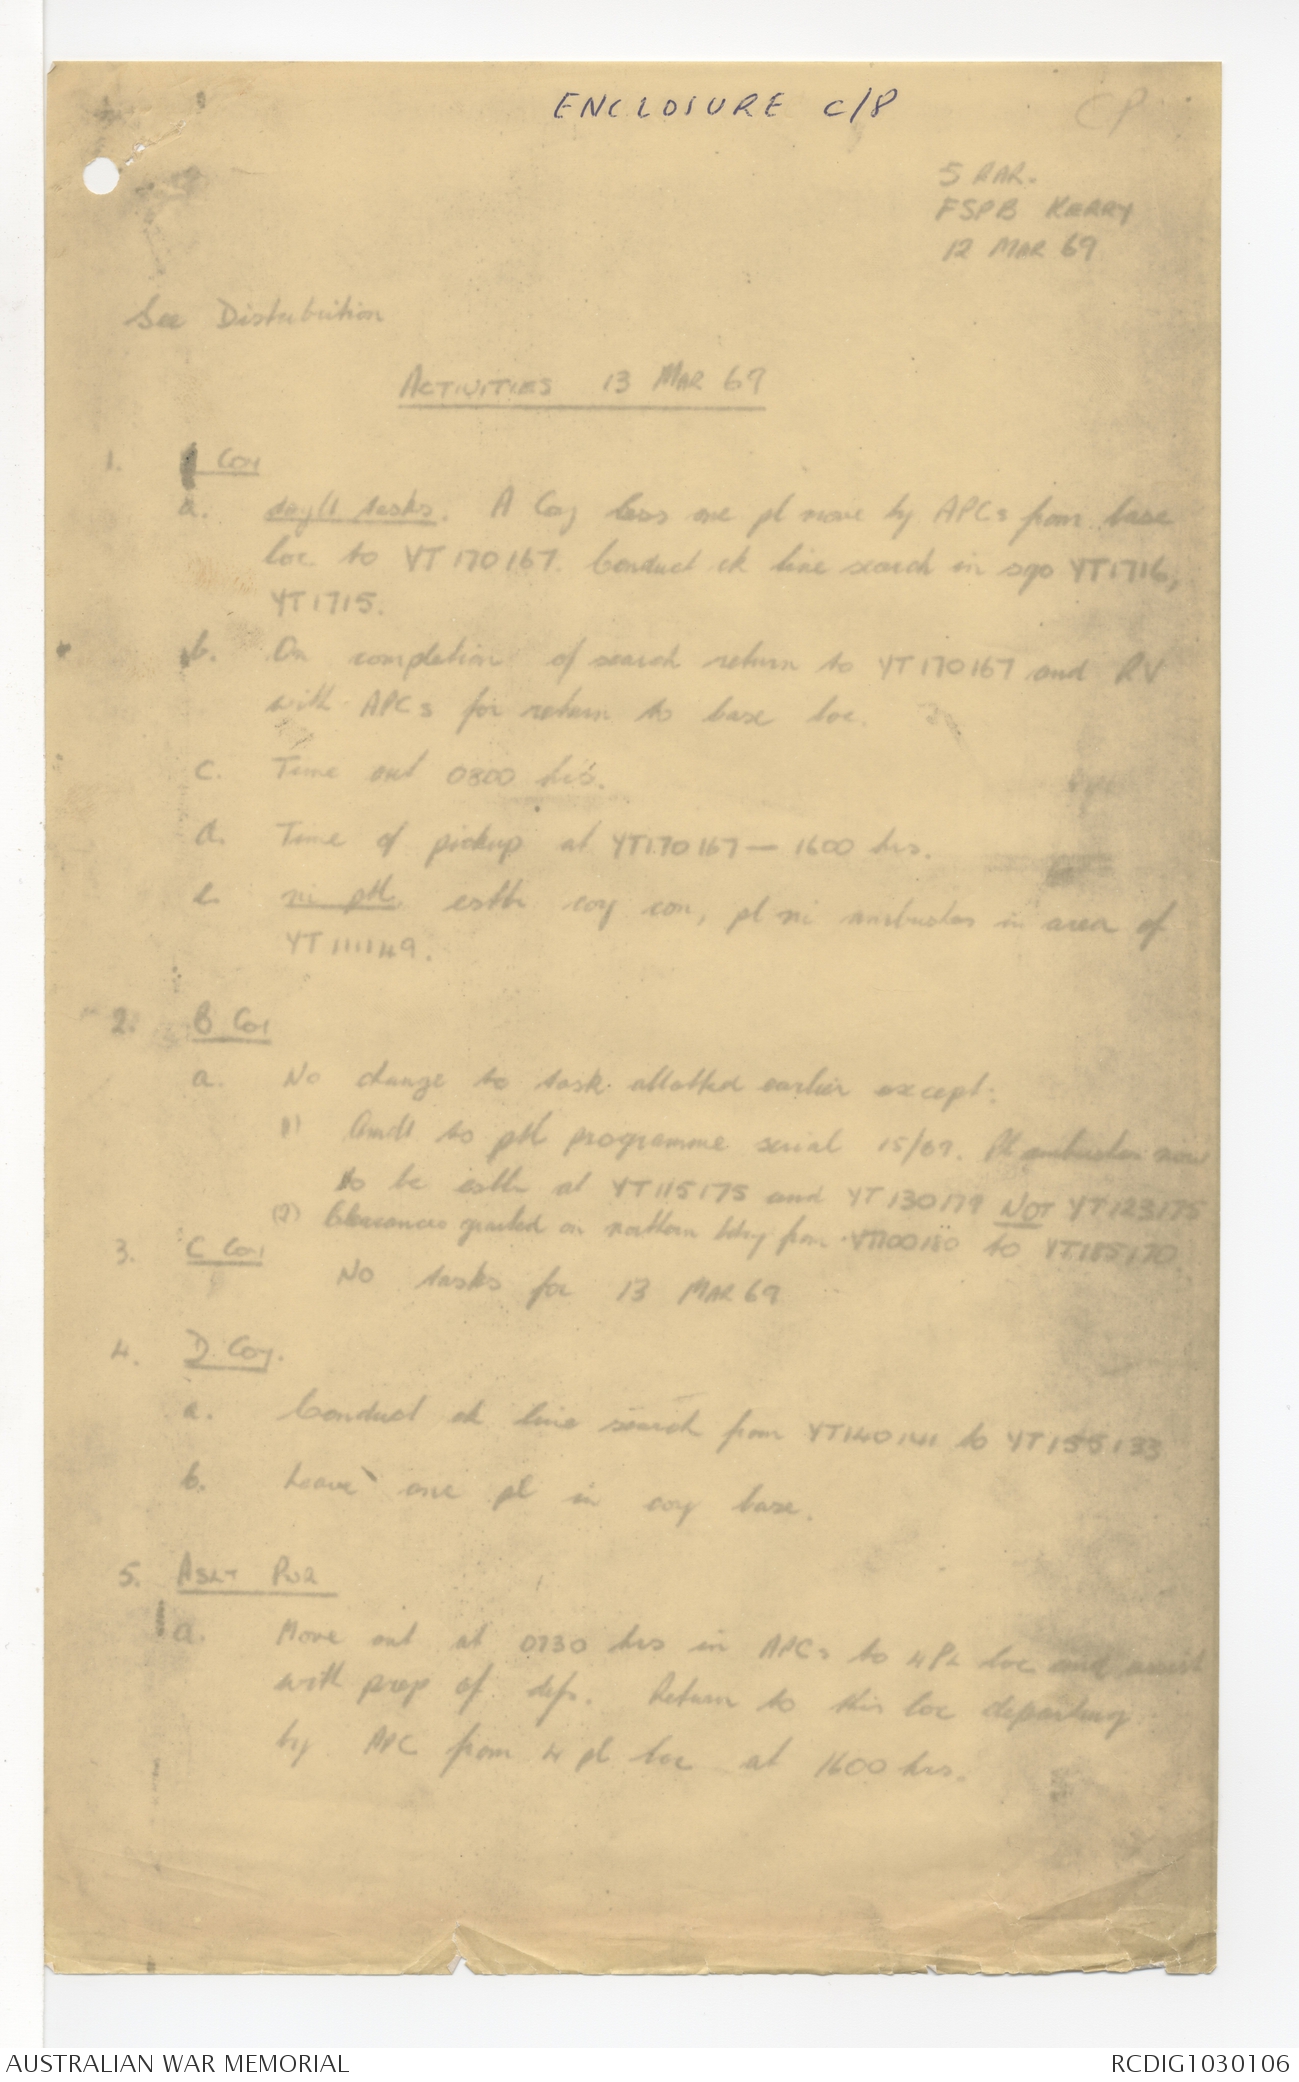 ENCLOSURE C/8
CP
5 RAR.
FSPB KERRY
12 MAR 69
See Distribution
ACTIVITIES 13 MAR 69
1. A Coy
a. daylt tasks. A Coy less one pl move by APCs from base
loc to YT170167. Conduct ck line search in sqs YT1716,
YT1715.
b. On completion of search return to YT170167 and RV
with APCs for return to base loc.
c. Time out 0800 hrs.
d. Time of pickup at YT170167 — 1600 hrs.
e. ni ptl, estb coy con, pl ni ambushes in area of
YT111149.
2. B Coy
a. No change to task allotted earlier except:
(1) Amdt to ptl programme serial 15/69. Pl ambushes now
to be estb at YT115175 and YT130179 NOT YT123175
(2) Clearances granted on northern bdry from YT100180 to YT185170
3. C Coy
No tasks for 13 MAR 69
4. D Coy.
a. Conduct ck line search from YT140141 to YT155133
b. Leave one pl in coy base.
5. ASLT PNR
a. Move out at 0730 hrs in APCs to 4 PL loc and assist
with prep of defs. Return to this loc departing
by APC from 4 pl loc at 1600 hrs.
AUSTRALIAN WAR MEMORIAL
RCDIG1030106